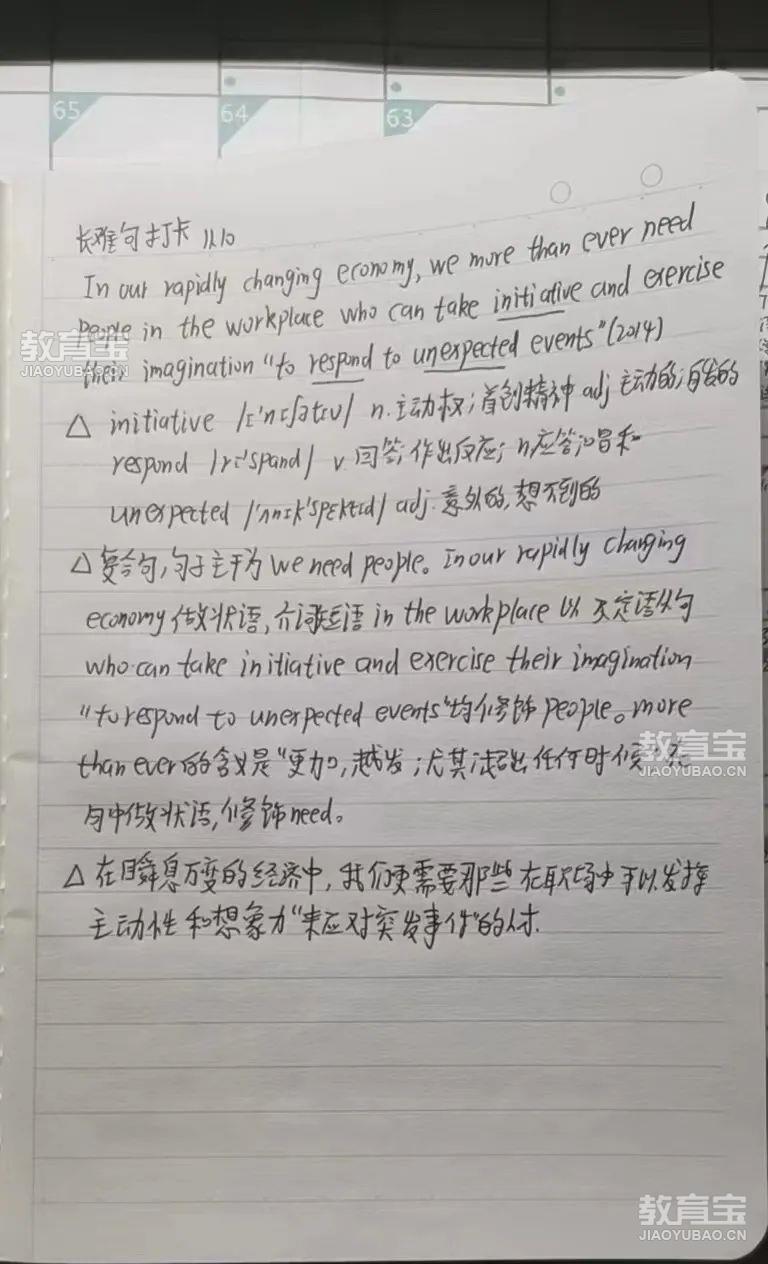 65
64
63
长难句打卡 11.10
In our rapidly changing economy, we more than ever need
people in the workplace who can take initiative and exercise
their imagination "to respond to unexpected events"(2014)
△ initiative /ɪ'nɪʃətɪv/ n.主动权;首创精神 adj 主动的;自发的
respond /rɪ'spɑnd/ v 回答;作出反应; n.应答;唱和
unexpected /ˌʌnɪk'spɛktɪd/ adj.意外的,想不到的
△ 复合句,句子主干为 we need people。In our rapidly changing
economy 做状语,介词短语 in the workplace 以及定语从句
who can take initiative and exercise their imagination
"to respond to unexpected events"均修饰 people。more
than ever的含义是"更加,越发;尤其;超出任何时候",在
句中做状语,修饰need。
△ 在瞬息万变的经济中,我们更需要那些在职场中可以发挥
主动性和想象力"来应对突发事件"的人才.
教育宝
JIAOYUBAO.CN
教育宝
JIAOYUBAO.CN
教育宝
JIAOYUBAO.CN